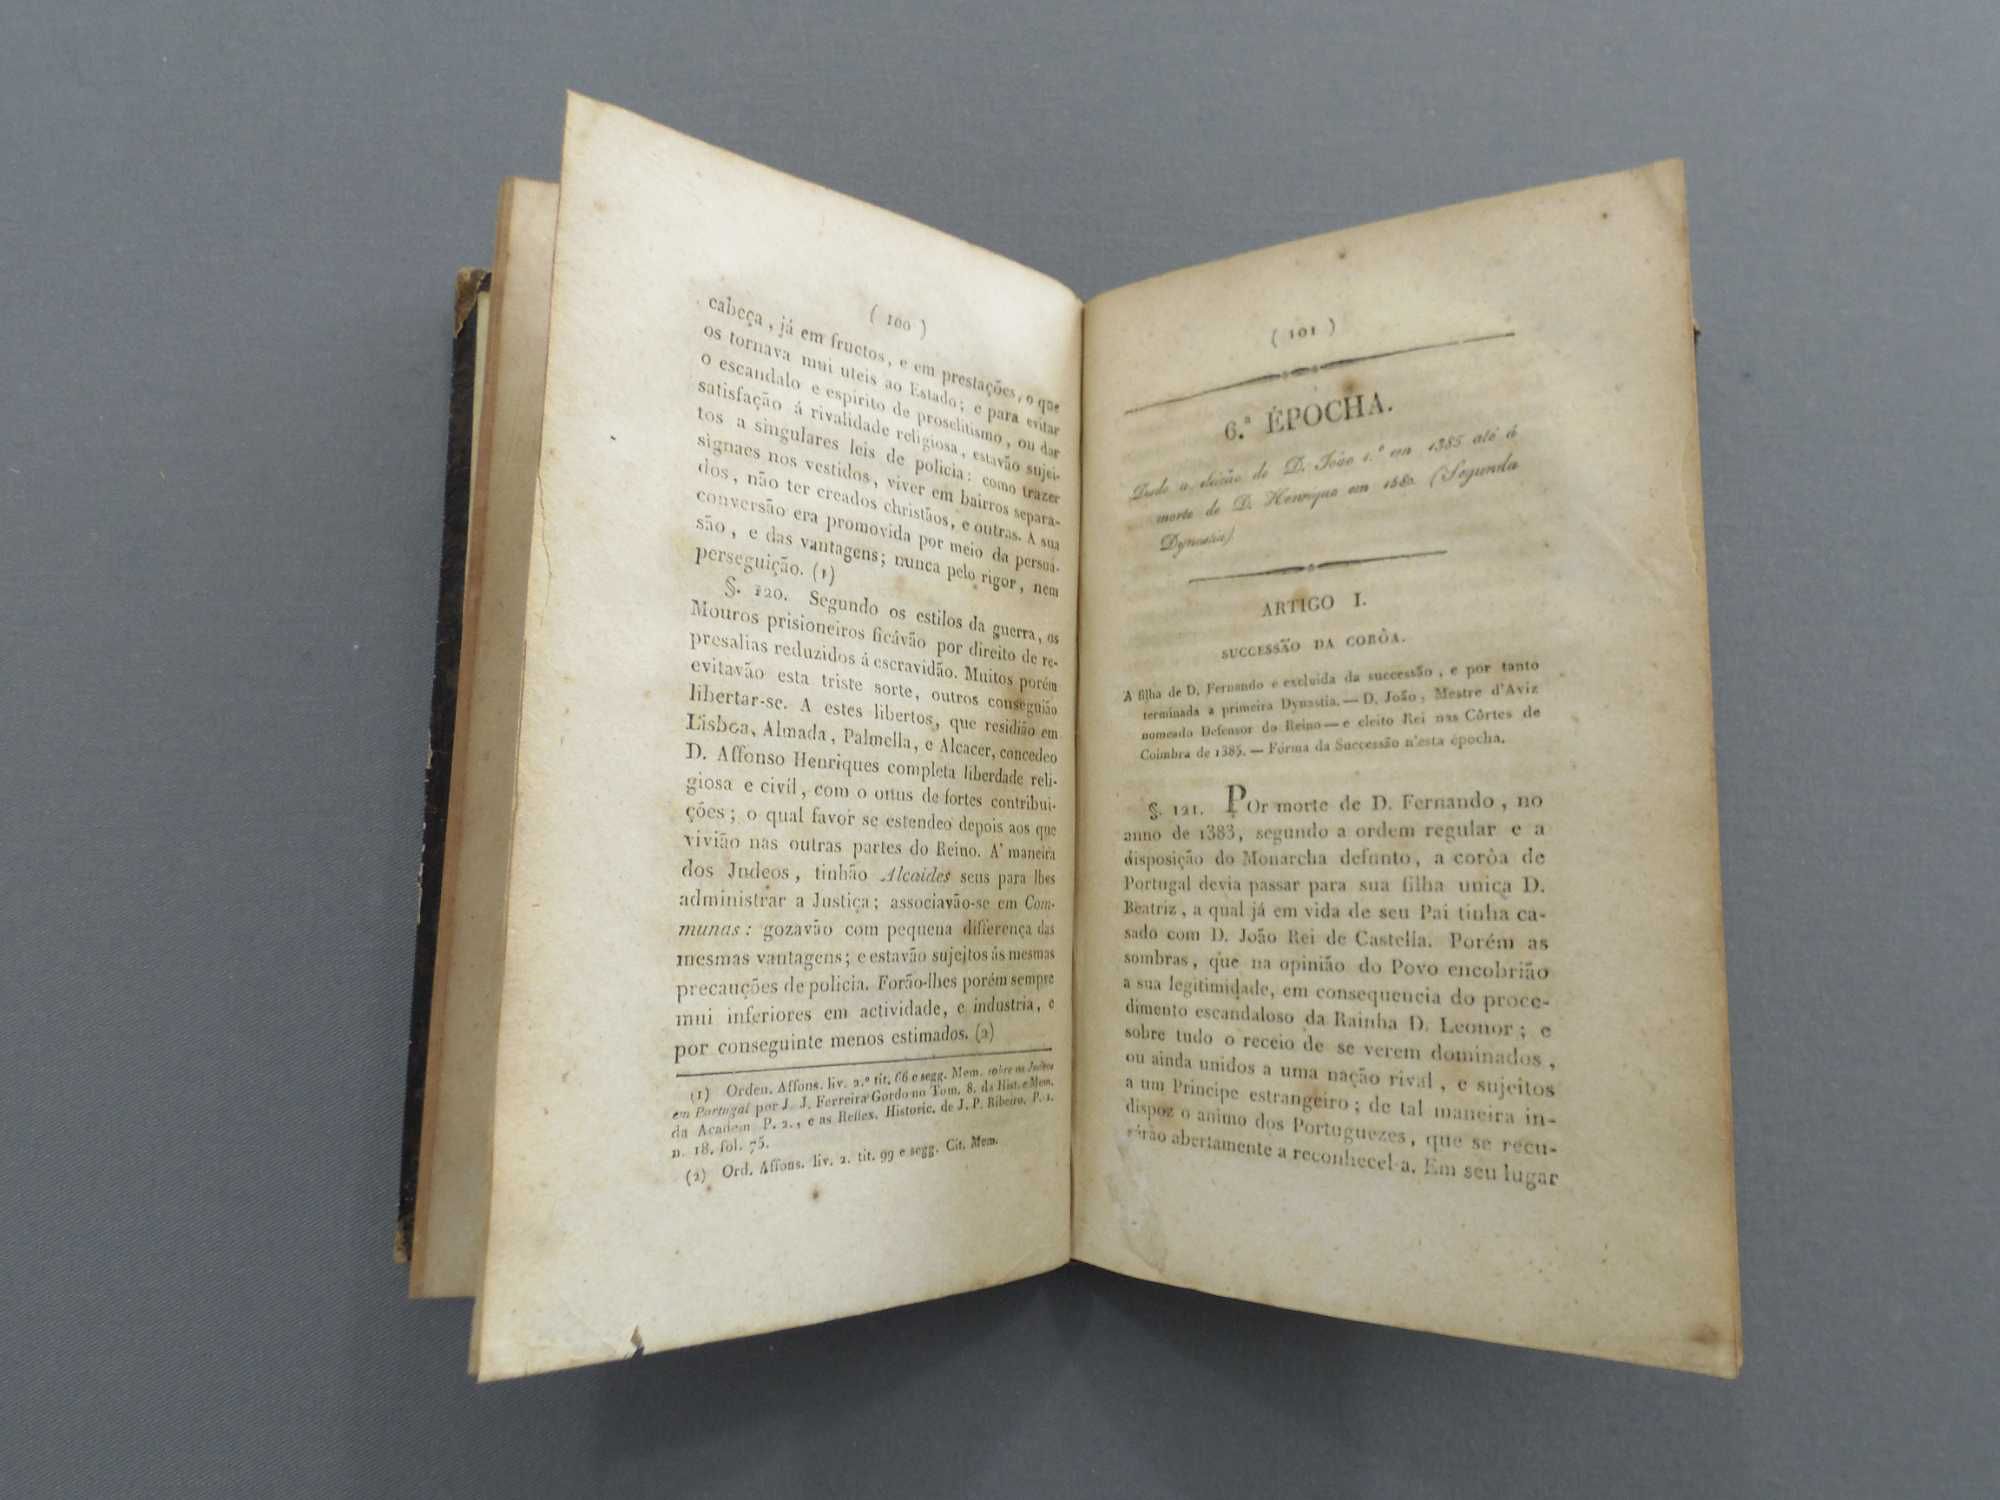 ( 100 )
cabeça, já em fructos, e em prestações, o que
os tornava mui uteis ao Estado; e para evitar
o escandalo e espirito de proselitismo, ou dar
satisfação á rivalidade religiosa, estavão sujei-
tos a singulares leis de policia: como trazer
signaes nos vestidos, viver em bairros separa-
dos, não ter creados christãos, e outras. A sua
conversão era promovida por meio da persua-
são, e das vantagens; nunca pelo rigor, nem
perseguição. (1)
§. 120. Segundo os estilos da guerra, os
Mouros prisioneiros ficávão por direito de re-
presalias reduzidos á escravidão. Muitos porém
evitavão esta triste sorte, outros conseguião
libertar-se. A estes libertos, que residião em
Lisboa, Almada, Palmella, e Alcacer, concedeo
D. Affonso Henriques completa liberdade reli-
giosa e civil, com o onus de fortes contribui-
ções; o qual favor se estendeo depois aos que
vivião nas outras partes do Reino. A' maneira
dos Judeos, tinhão Alcaides seus para lhes
administrar a Justiça; associavão-se em Com-
munas: gozavão com pequena differença das
mesmas vantagens; e estavão sujeitos ás mesmas
precauções de policia. Forão-lhes porém sempre
mui inferiores em actividade, e industria, e
por conseguinte menos estimados. (2)
(1) Orden. Affons. liv. 2.º tit. 66 e segg. Mem. sobre os Judeos
em Portugal por J. J. Ferreira Gordo no Tom. 8. da Hist. e Mem.
da Academ P. 2., e as Reflex. Historic. de J. P. Ribeiro. P. 1.
n. 18. fol. 75.
(2) Ord. Affons. liv. 2. tit. 99 e segg. Cit. Mem.
( 101 )
6.ª ÉPOCHA.
Desde a eleição de D. João 1.º em 1385 até á
morte de D. Henrique em 1580. (Segunda
Dynastia).
ARTIGO I.
SUCCESSÃO DA CORÔA.
A filha de D. Fernando e excluida da successão, e por tanto
terminada a primeira Dynastia. — D. João, Mestre d'Aviz
nomeado Defensor do Reino — e eleito Rei nas Côrtes de
Coimbra de 1385. — Fórma da Successão n'esta época.
§. 121. POr morte de D. Fernando, no
anno de 1383, segundo a ordem regular e a
disposição do Monarcha defunto, a corôa de
Portugal devia passar para sua filha unica D.
Beatriz, a qual já em vida de seu Pai tinha ca-
sado com D. João Rei de Castella. Porém as
sombras, que na opinião do Povo encobrião
a sua legitimidade, em consequencia do proce-
dimento escandaloso da Rainha D. Leonor; e
sobre tudo o receio de se verem dominados,
ou ainda unidos a uma nação rival, e sujeitos
a um Principe estrangeiro; de tal maneira in-
dispoz o animo dos Portuguezes, que se recu-
sárão abertamente a reconhecel-a. Em seu lugar